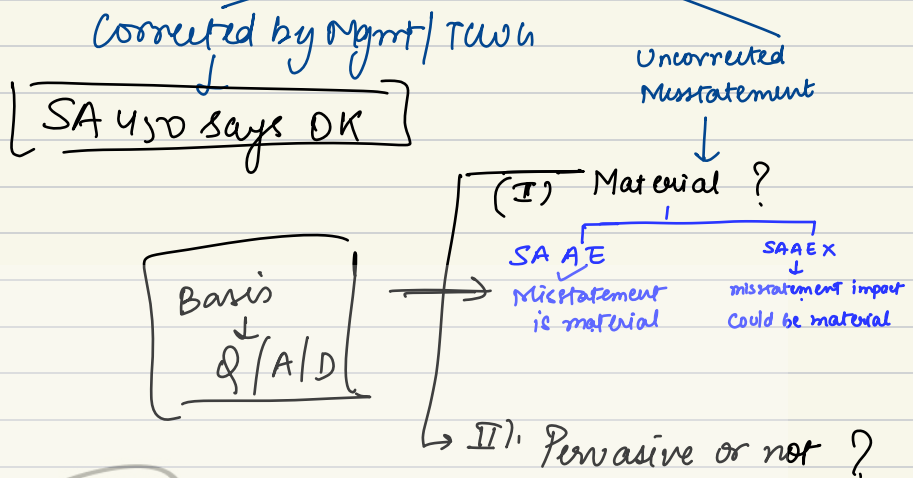 Corrected by Mgmt/TCWG
Uncorrected
Misstatement
SA 450 says OK
(I) Material ?
SAAE
Misstatement
is material
SAAEX
misstatement impact
Could be material
Basis
Q/A/D
II). Pervasive or not ?